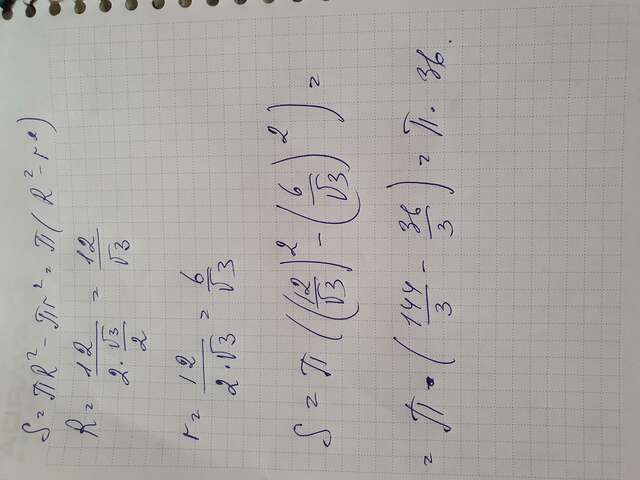 S = πR² - πr² = π(R² - r²)
R = 12/(2·√3/2) = 12/√3
r = 12/(2·√3) = 6/√3
S = π((12/√3)² - (6/√3)²) =
= π·(144/3 - 36/3) = π·36.